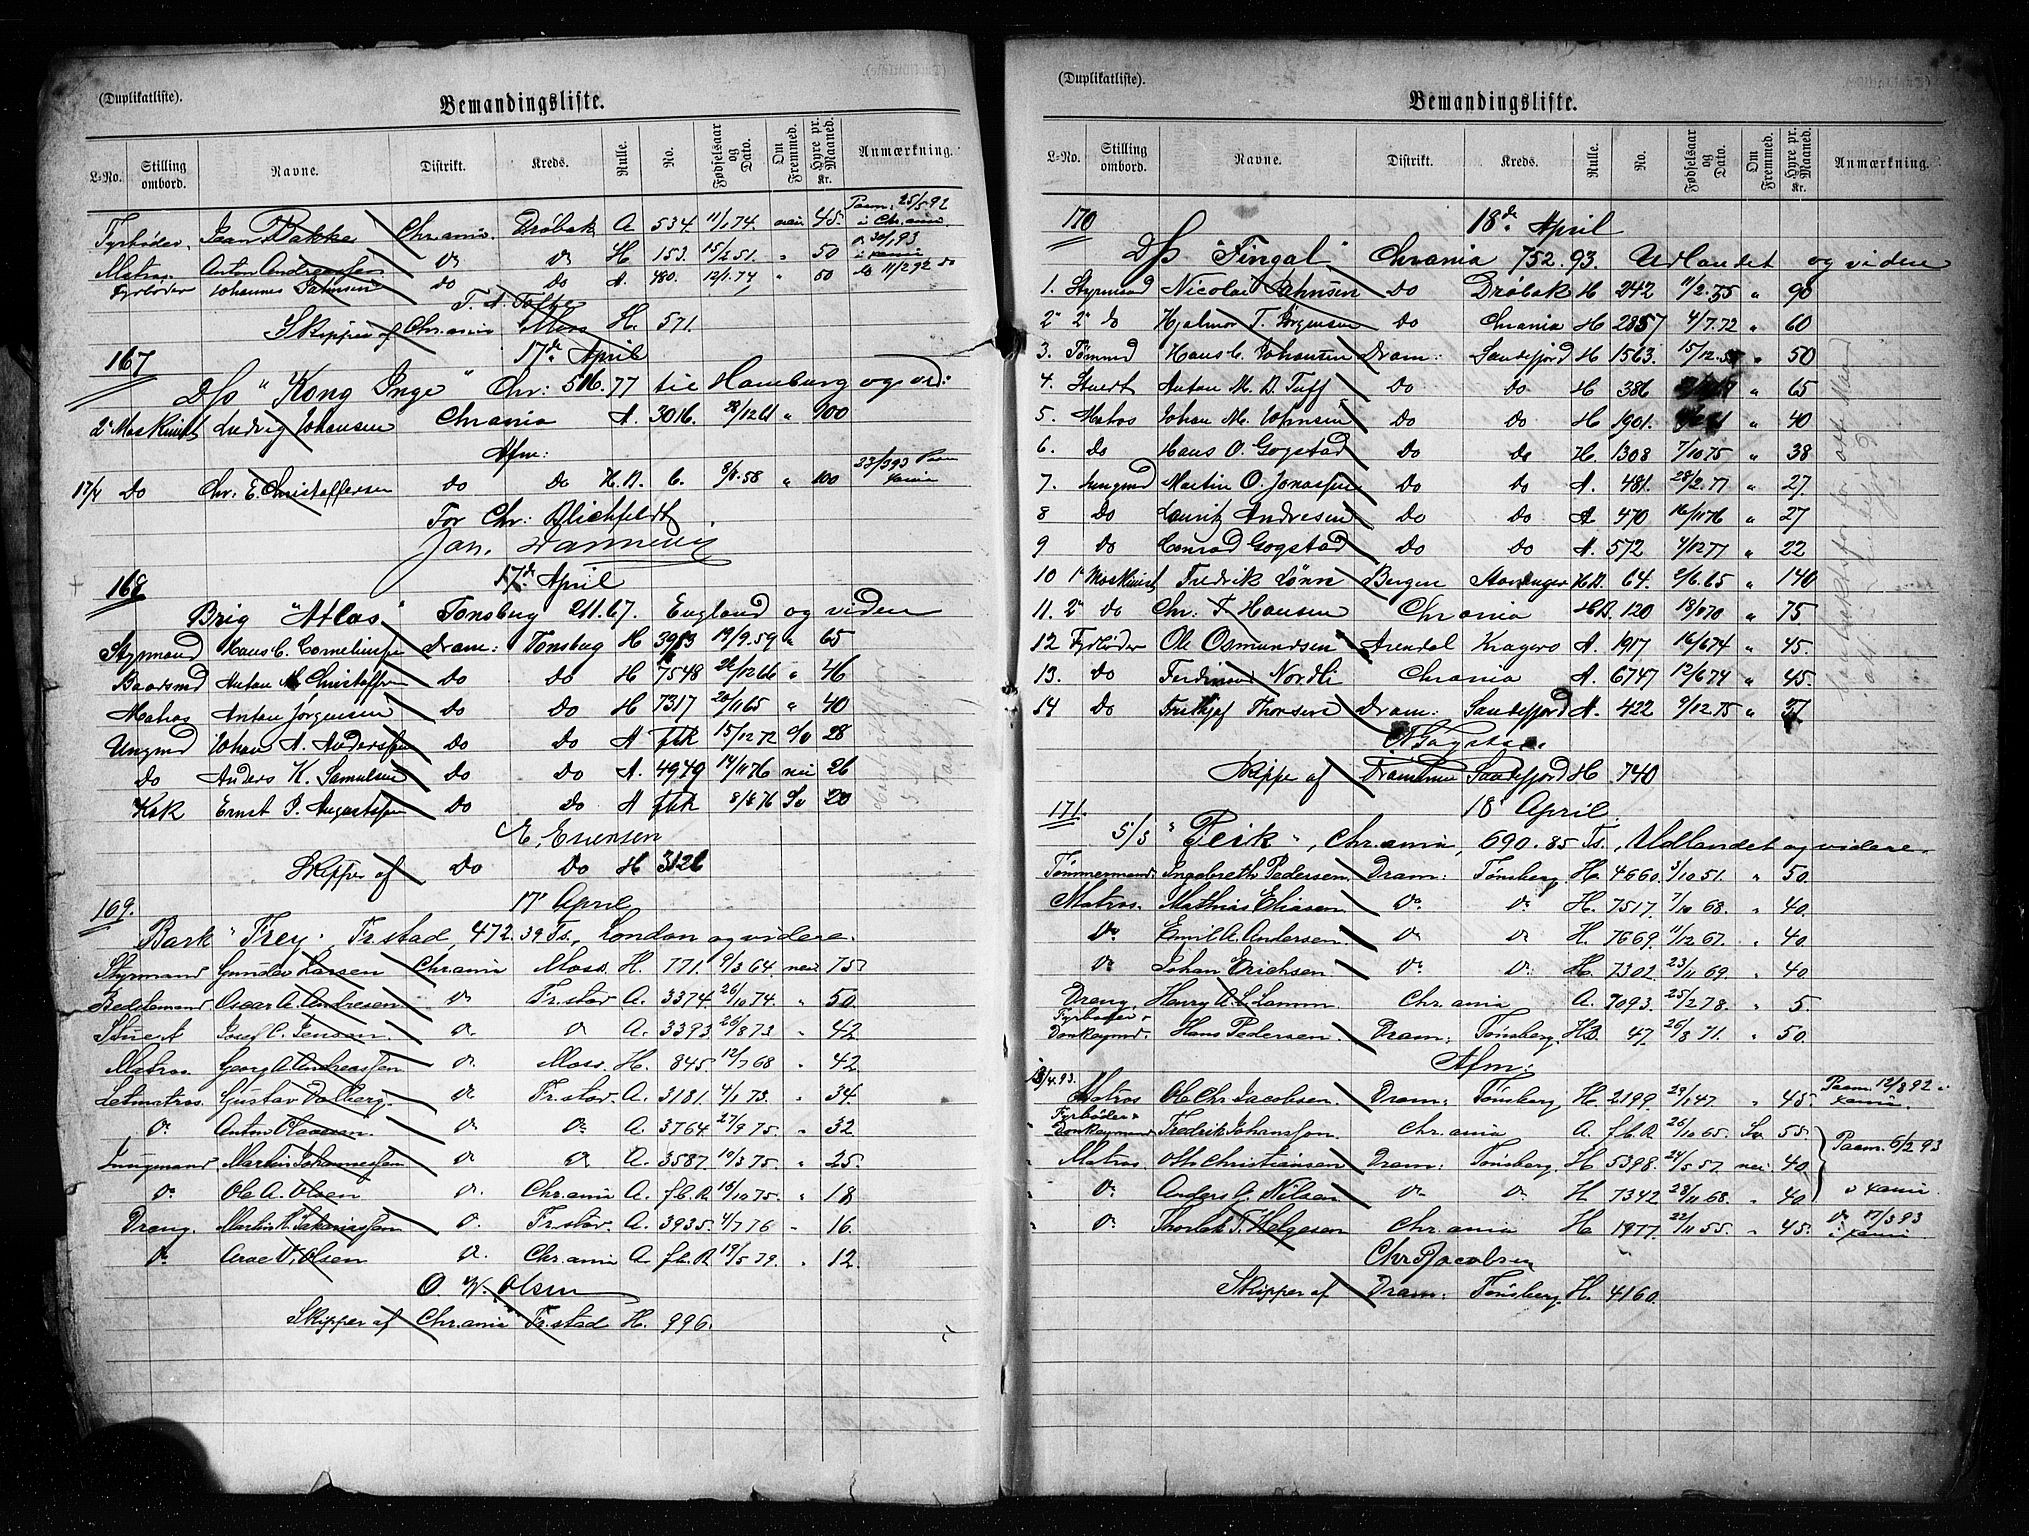 (Duplikatliste).
Bemandingsliste.
L-No. Stilling ombord. Navne. Distrikt. Kreds. Rulle. No. Fødselsaar og Dato. Om Fremmed. Hyre pr. Maaned. Kr. Anmærkning.
Fyrbøder Jean Bakke Chr.ania Drøbak A 534 11/1 74 nei 45 Paam. 25/5 92 i Chr.ania
Matros Anton Andreassen Do Do H 153 15/2 51 " 50
Fyrbøder Johannes Do Do A. 480. 12/1.74 " 50 Do 11/2 92 do
Skipper af Chr.ania Moss H. 571.
167 17de April
D/s "Kong Inge" Chr: 516.77 til Hamburg og vid:
2" Maskinist Ludvig Johansen Chrania A. 3016. 28/12 61 " 100
Afm:
17/4 Do Chr. E. Christoffersen do Do H.D. 6. 8/8.58 " 100
For Chr: Blichfeldt
Jon. Dannevig
168 17de April
Brig "Atlas" Tonsberg 211.67. England og videre
Styrmand Hans C. Corneliussen Dram: Tonsberg H 3983 19/9.59 " 65
Baadsmd Anton M. Christoffersen Do Do H 7548 26/12 66 " 46
Matros Anton Jørgensen Do Do H 7317 20/11 65 " 40
Ungmd Johan A. Anderssen Do Do A fbR 15/12 72 Sv 28
Do Anders K. Samulsen Do Do A. 4949 14/11 76 nei 26
Kok Ernst P. Augustssen Do Do A fbR 8/8 76 Sv 20
E. Evensen
Skipper af Do Do H 3126
169. 17' April
Bark "Frey", Fr.stad, 472.39 Ts., London og videre.
Styrmand Gunder Larsen Chr.ania Moss. H. 771. 9/3 64. nei 75
Bedstemand Oscar A. Andresen Do Fr.stad. A. 3374 26/10 74. " 50.
Stuert Josef C. Jensen. Do Do A. 3393 26/8 73. " 42
Matros Georg A. Andreassen Do Moss. H. 845. 12/7 68 " 42
Letmatros. Gustav Dalberg. Do Fr.stad. A. 3181. 4/1 73. " 34.
Do. Anton Olavesen. Do Do A. 3764. 27/9 75. " 32
Jungmand Martin Johannessen Do Do A. 3587. 10/3 75. " 25.
Do Ole A. Olsen Do. Chr.ania A. f.b.R 18/10 75. " 18
Dreng. Martin K. Zakariassen Do. Fr.stad. A. 3935. 4/7 76 " 16.
Do Olsen Do. Chr.ania A. f.b.R 19/5 79. " 12.
O. W. Olsen
Skipper af Chr.ania Fr.stad H. 996.
(Duplikatliste).
Bemandingsliste.
L-No. Stilling ombord. Navne. Distrikt. Kreds. Rulle. No. Fødselsaar og Dato. Om Fremmed. Hyre pr. Maaned. Kr. Anmærkning.
170 18de April
D/s "Fingal" Chrania 752.93. Udlandet og videre
1. Styrmand Nicolai Johnsen Do Drøbak H 242 11/2.35 " 90
2" 2" do Hjalmar T. Jørgensen Do Chrania H 2857 4/7.72 " 60
3. Tømmd Hans C. Johansen Dram: Sandefjord H 1563. 15/12 " 50
4. Stuert Anton M. D. Tuff Do Do H 386 " 65
5. Matros Johan M. Johnsen Do Do H 1901. " 40
6. Do Hans O. Gogstad Do Do H. 1308 7/10 75 " 38
7. Jungmd Martin O. Jonassen Do Do A. 481. 28/2.77 " 27.
8 Do Lauritz Andresen Do Do A. 470 16/11 76 " 27
9 Do Conrad Gogstad Do Do A. 572 4/12 77 " 22
10 1" Maskinist Fredrik Lønn Bergen Stavanger H.D. 64. 2/6.65 " 140
11. 2" do Chr: T. Hansen Chrania H.D. 120 18/8 70 " 75
12 Fyrbøder Ole Osmundsen Arendal Kragerø A. 1917 16/6 74 " 45.
13. Do Ferdinand Nordli Chrania A. 6747 12/6 74 " 45.
14 Do Frithjof Thorsen Dram: Sandefjord A. 422 9/12 75 " 27
Skipper af Drammen Sandefjord H 740
171. 18' April.
S/S "Peik", Chr.ania, 690.85 Ts., Udlandet og videre.
Tømmermand Ingebreth Pedersen Dram: Tønsberg. H. 4660. 3/10 51. " 50.
Matros. Mathias Eliasen. Do Do H. 7517. 7/10 68. " 40.
Do Emil A. Andersen. Do Do H. 7669. 11/12 67. " 40
Do Johan Erichsen. Do Do H. 7302. 23/11 69. " 40
Dreng. Henry A. L. Lamm. Chr.ania A. 7093. 25/2 78. " 5.
Fyrbøder & Donkeymd. Hans Pedersen. Dram: Tønsberg. H.D. 47. 26/8 71. " 50.
Afm:
18/4.93. Matros Ole Chr. Jacobsen. Dram: Tønsberg H. 2199. 29/1 47. " 45. Paam. 12/8 92 i Xania.
Fyrbøder & Donkeymand Fredrik Johansson. Chr.ania A. f.b.R 26/10 65. Sv. 55. Paam. 6/2 93
Matros. Oth. Christiansen Dram: Tønsberg. H. 5398. 24/5 57 nei 40 i Xania.
Do Anders G. Nilsen Do Do H. 7342 28/11 68. " 40.
Do Thorleif T. Helgesen Chr.ania H. 1977. 22/11 55. " 45. Do 17/3 93 i Xania.
Chr. Jacobsen
Skipper af Dram: Tønsberg. H. 4160.